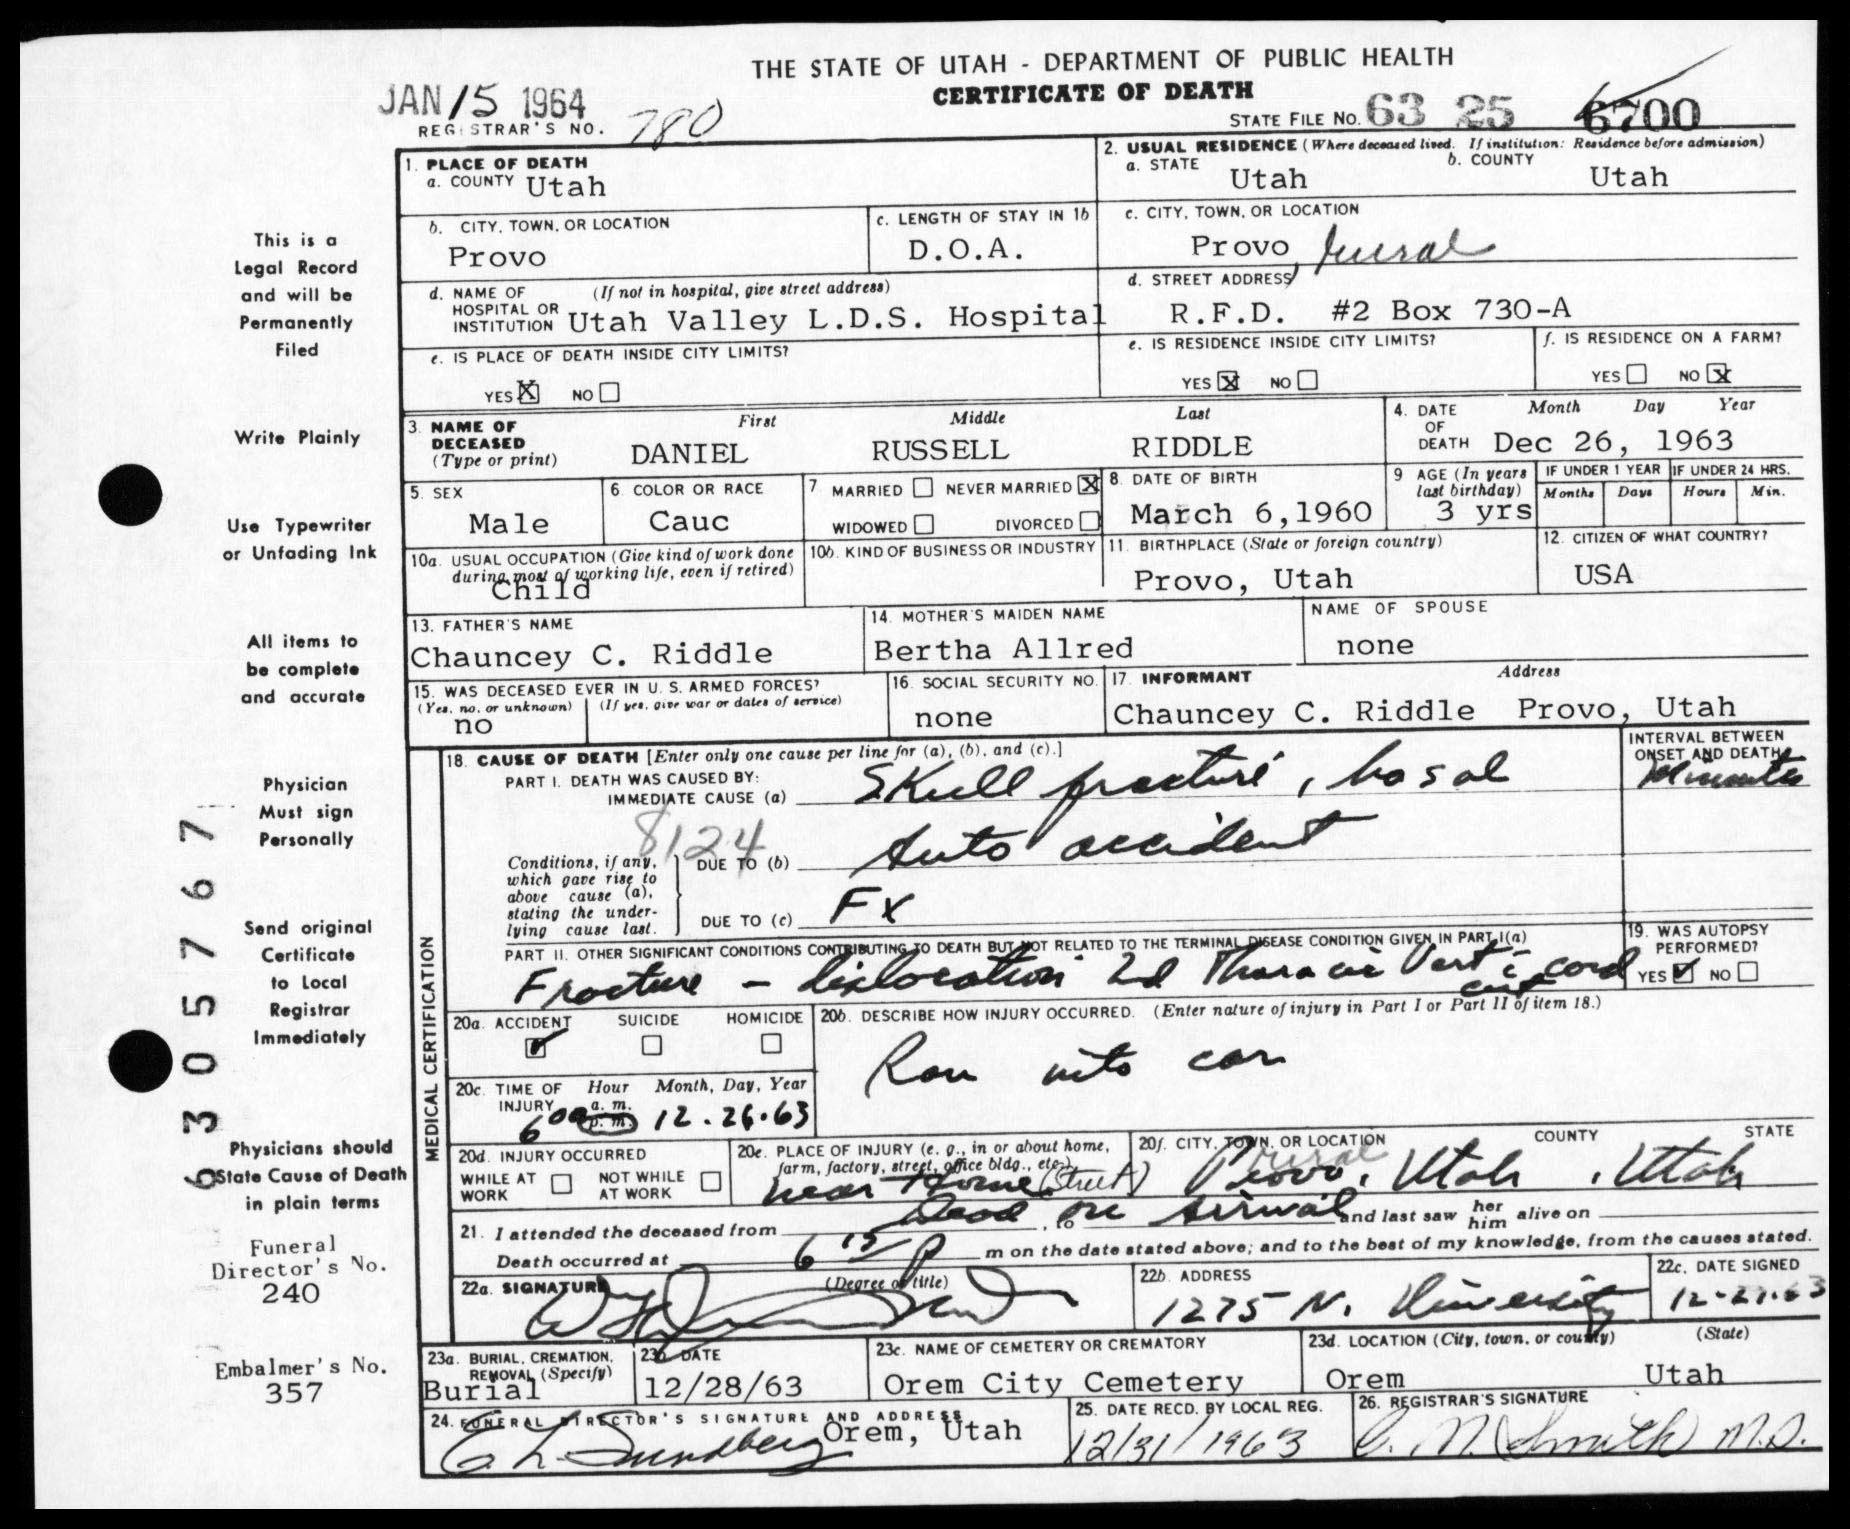 THE STATE OF UTAH - DEPARTMENT OF PUBLIC HEALTH
CERTIFICATE OF DEATH
JAN 15 1964
REGISTRAR'S NO. 780
STATE FILE NO. 63 25 6700
This is a
Legal Record
and will be
Permanently
Filed
Write Plainly
Use Typewriter
or Unfading Ink
All items to
be complete
and accurate
Physician
Must sign
Personally
Send original
Certificate
to Local
Registrar
Immediately
Physicians should
State Cause of Death
in plain terms
Funeral
Director's No.
240
Embalmer's No.
357
6305767
1. PLACE OF DEATH
a. COUNTY Utah
2. USUAL RESIDENCE (Where deceased lived. If institution: Residence before admission)
a. STATE Utah b. COUNTY Utah
b. CITY, TOWN, OR LOCATION
Provo
c. LENGTH OF STAY IN 1b
D.O.A.
c. CITY, TOWN, OR LOCATION
Provo, rural
d. NAME OF HOSPITAL OR INSTITUTION (If not in hospital, give street address)
Utah Valley L.D.S. Hospital
d. STREET ADDRESS
R.F.D. #2 Box 730-A
e. IS PLACE OF DEATH INSIDE CITY LIMITS?
YES X NO
e. IS RESIDENCE INSIDE CITY LIMITS?
YES X NO
f. IS RESIDENCE ON A FARM?
YES NO X
3. NAME OF DECEASED (Type or print)
First Middle Last
DANIEL RUSSELL RIDDLE
4. DATE OF DEATH Month Day Year
Dec 26, 1963
5. SEX
Male
6. COLOR OR RACE
Cauc
7. MARRIED NEVER MARRIED X
WIDOWED DIVORCED
8. DATE OF BIRTH
March 6,1960
9 AGE (In years last birthday)
3 yrs
IF UNDER 1 YEAR IF UNDER 24 HRS.
Months Days Hours Min.
10a. USUAL OCCUPATION (Give kind of work done during most of working life, even if retired)
Child
10b. KIND OF BUSINESS OR INDUSTRY
11. BIRTHPLACE (State or foreign country)
Provo, Utah
12. CITIZEN OF WHAT COUNTRY?
USA
13. FATHER'S NAME
Chauncey C. Riddle
14. MOTHER'S MAIDEN NAME
Bertha Allred
NAME OF SPOUSE
none
15. WAS DECEASED EVER IN U. S. ARMED FORCES?
(Yes, no, or unknown) (If yes, give war or dates of service)
no
16. SOCIAL SECURITY NO.
none
17. INFORMANT Address
Chauncey C. Riddle Provo, Utah
MEDICAL CERTIFICATION
18. CAUSE OF DEATH [Enter only one cause per line for (a), (b), and (c).]
PART I. DEATH WAS CAUSED BY:
IMMEDIATE CAUSE (a) Skull fracture, basal
INTERVAL BETWEEN ONSET AND DEATH
Minutes
8124
Conditions, if any, which gave rise to above cause (a), stating the underlying cause last.
DUE TO (b) Auto accident
DUE TO (c) Fx
PART II. OTHER SIGNIFICANT CONDITIONS CONTRIBUTING TO DEATH BUT NOT RELATED TO THE TERMINAL DISEASE CONDITION GIVEN IN PART I(a)
Fracture - dislocation 2d Thoracic Vert c cord cut
19. WAS AUTOPSY PERFORMED?
YES ✓ NO
20a. ACCIDENT ✓ SUICIDE HOMICIDE
20b. DESCRIBE HOW INJURY OCCURRED. (Enter nature of injury in Part I or Part II of item 18.)
Ran into car
20c. TIME OF INJURY Hour Month, Day, Year
6 00 a. m. p. m. 12.26.63
20d. INJURY OCCURRED
WHILE AT WORK NOT WHILE AT WORK
20e. PLACE OF INJURY (e. g., in or about home, farm, factory, street, office bldg., etc.)
near Home (Street)
20f. CITY, TOWN, OR LOCATION COUNTY STATE
rural
Provo, Utah, Utah
21. I attended the deceased from Dead on , to Arrival and last saw her him alive on
Death occurred at 6 15 p m on the date stated above; and to the best of my knowledge, from the causes stated.
22a. SIGNATURE (Degree or title)
22b. ADDRESS
1275 N. University
22c. DATE SIGNED
12-27-63
23a. BURIAL, CREMATION, REMOVAL (Specify)
Burial
23b. DATE
12/28/63
23c. NAME OF CEMETERY OR CREMATORY
Orem City Cemetery
23d. LOCATION (City, town, or county) (State)
Orem Utah
24. FUNERAL DIRECTOR'S SIGNATURE AND ADDRESS
E. L. Sundberg Orem, Utah
25. DATE RECD. BY LOCAL REG.
12/31/1963
26. REGISTRAR'S SIGNATURE
C. N. Smith M.D.